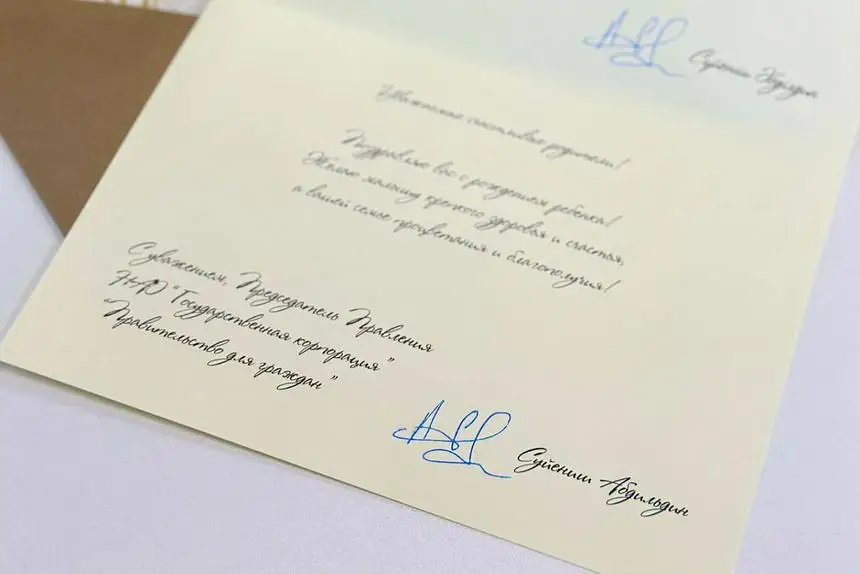 Суйениш Абдильдин
Уважаемые счастливые родители!
Поздравляю вас с рождением ребенка!
Желаю малышу крепкого здоровья и счастья,
а вашей семье процветания и благополучия!
С уважением, Председатель Правления
НАО "Государственная корпорация"
"Правительство для граждан"
Суйениш Абдильдин